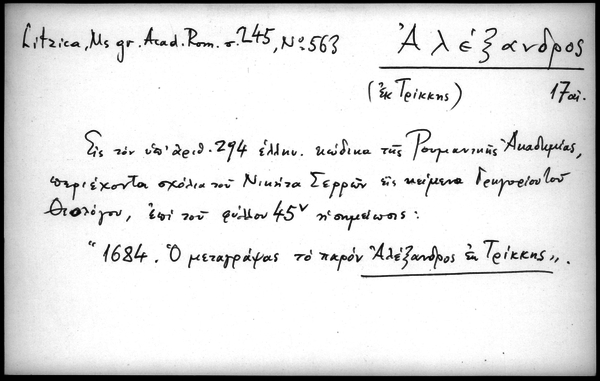 Litzica, Ms gr. Acad. Rom. σ. 245, No. 563
Ἀλέξανδρος
(ἐκ Τρίκκης) 17 αἰ.
Εἰς τὸν ὑπ' ἀριθ. 294 ἑλλην. κώδικα τῆς Ρουμανικῆς Ἀκαδημίας,
περιέχοντα σχόλια τοῦ Νικήτα Σερρῶν εἰς κείμενα Γρηγορίου τοῦ
Θεολόγου, ἐπὶ τοῦ φύλλου 45ν ἡ σημείωσις:
"1684. Ὁ μεταγράψας τὸ παρόν Ἀλέξανδρος ἐκ Τρίκκης„.